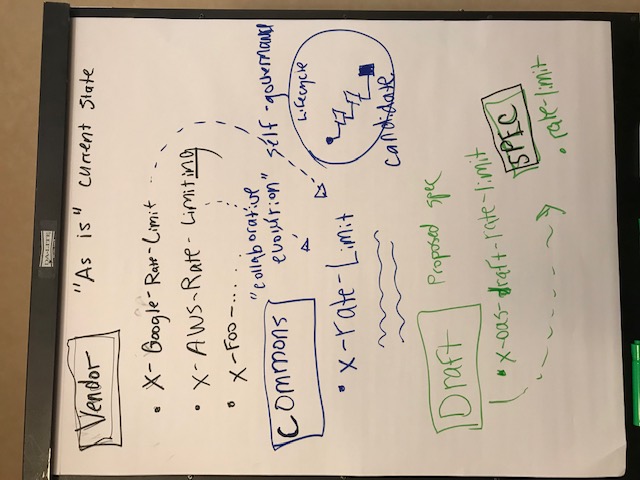 DA-LITE
Vendor
"As is" current state
• X-Google-Rate-Limit
• X-AWS-Rate-Limiting
• X-Foo-.....
"collaborative
evolution"
self-governance
Commons
Lifecycle
• x-rate-Limit
candidate
Draft
Proposed spec
• x-oas-draft-rate-limit
SPEC
• rate-limit